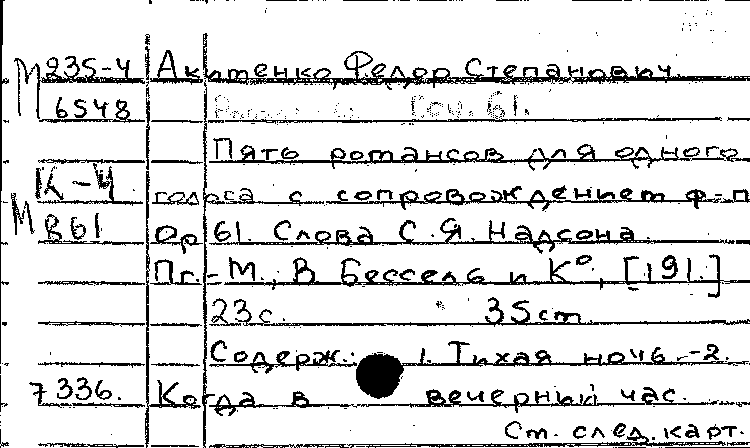 М 235-4 Акименко, Федор Степанович.
6548 Соч. 61.
Пять романсов для одного
К-4 голоса с сопровождением ф-п
М 861 Ор 61. Слова С. Я. Надсона.
Пг.-М., В. Бессель и К°, [191.]
23с. 35см.
Содерж.: 1. Тихая ночь.-2.
7336. Когда в вечерний час.
См. след. карт.